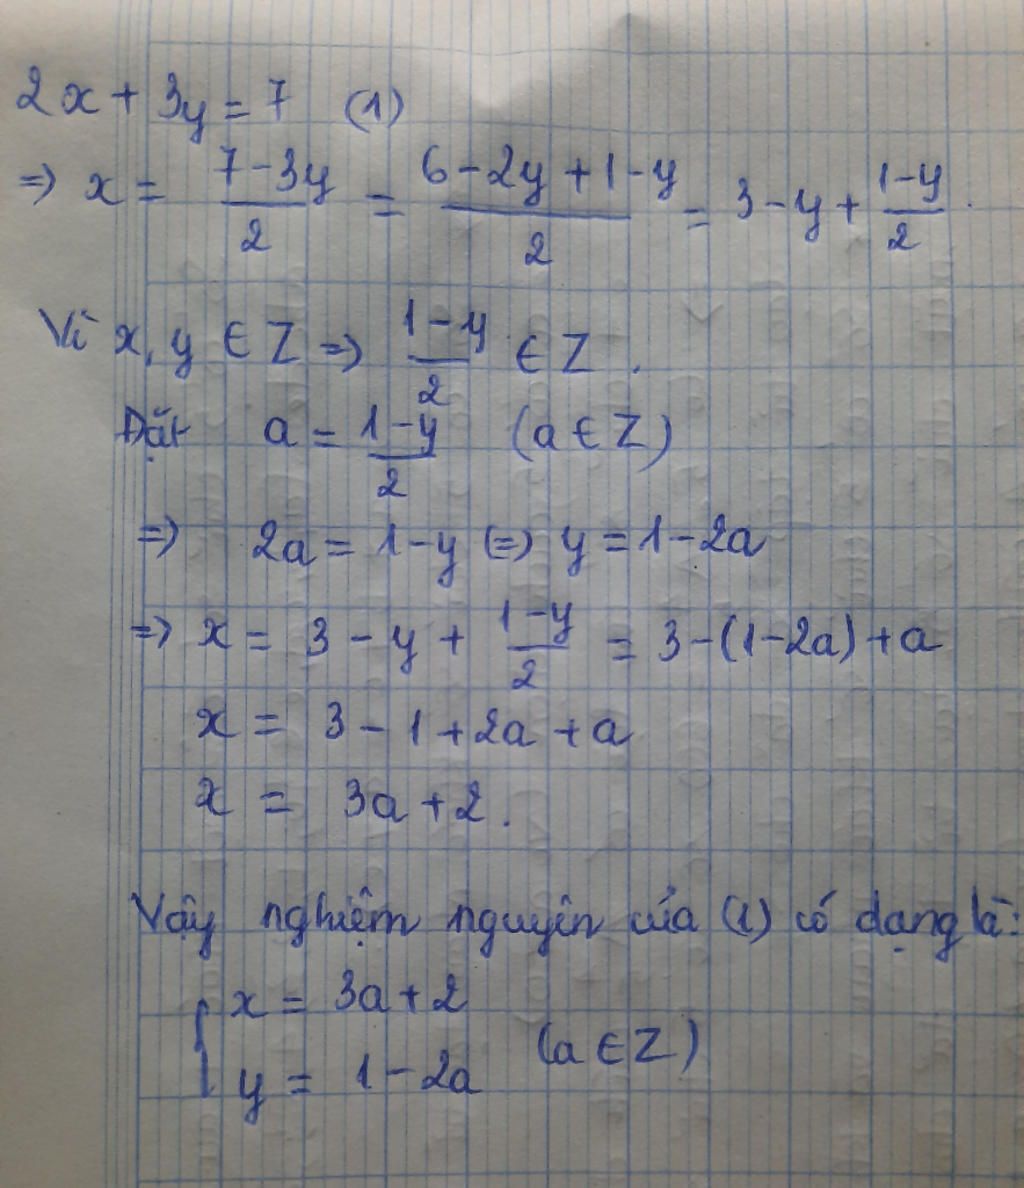 2x + 3y = 7 (1)
=> x = (7-3y)/2 = (6-2y+1-y)/2 = 3-y + (1-y)/2.
Vì x, y ∈ Z => (1-y)/2 ∈ Z.
Đặt a = (1-y)/2 (a ∈ Z)
=> 2a = 1-y <=> y = 1-2a
=> x = 3 - y + (1-y)/2 = 3-(1-2a)+a
x = 3 - 1 + 2a + a
x = 3a + 2.
Vậy nghiệm nguyên của (1) có dạng là:
{ x = 3a + 2
y = 1 - 2a (a ∈ Z)